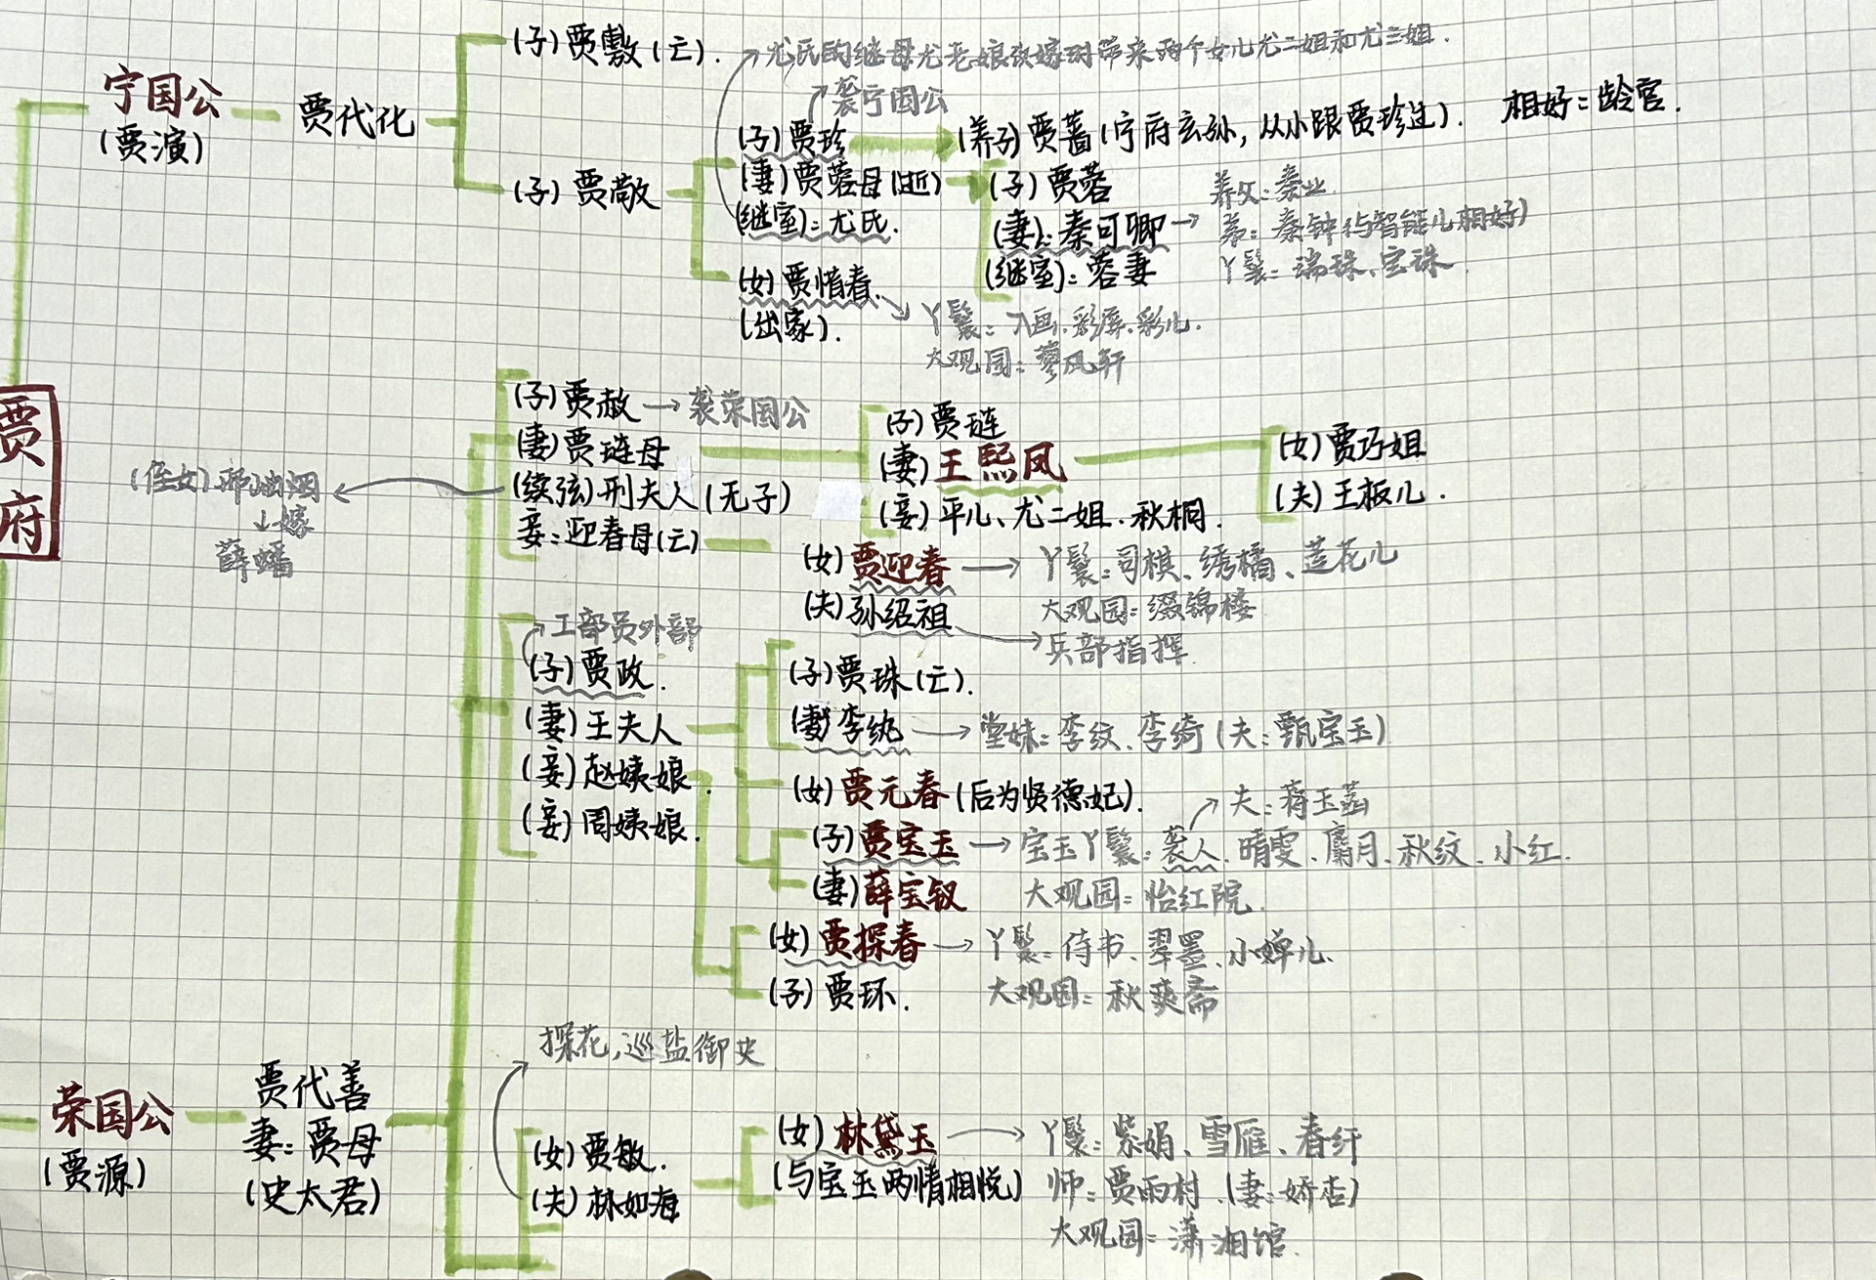 贾府
宁国公
(贾演)
贾代化
(子)贾敷(亡).
(子)贾敬
尤氏的继母尤老娘改嫁时带来两个女儿尤二姐和尤三姐.
袭宁国公
(子)贾珍
(妻)贾蓉母(逝)
(继室):尤氏.
(女)贾惜春.
(出家).
(养子)贾蔷(宁府玄孙,从小跟贾珍过). 相好:龄官.
(子)贾蓉
(妻):秦可卿
(继室):蓉妻
养父:秦业
弟:秦钟(与智能儿相好)
丫鬟:瑞珠、宝珠
丫鬟:入画.彩屏.彩儿.
大观园:蓼风轩
(子)贾赦→袭荣国公
(妻)贾琏母
(续弦)刑夫人(无子)
妾:迎春母(亡)
(侄女)邢岫烟
↓嫁
薛蟠
(子)贾琏
(妻)王熙凤
(妾)平儿、尤二姐.秋桐.
(女)贾巧姐
(夫)王板儿.
(女)贾迎春→丫鬟:司棋、绣橘、莲花儿
(夫)孙绍祖
大观园:缀锦楼
兵部指挥
工部员外部
(子)贾政.
(妻)王夫人
(妾)赵姨娘.
(妾)周姨娘.
(子)贾珠(亡).
(妻)李纨→堂妹:李纹、李绮(夫:甄宝玉)
(女)贾元春(后为贤德妃).
夫:蒋玉菡
(子)贾宝玉→宝玉丫鬟:袭人.晴雯.麝月.秋纹.小红.
(妻)薛宝钗
大观园:怡红院.
(女)贾探春→丫鬟:侍书、翠墨、小蝉儿.
(子)贾环.
大观园:秋爽斋
荣国公
(贾源)
贾代善
妻:贾母
(史太君)
探花,巡盐御史
(女)贾敏.
(夫)林如海
(女)林黛玉→丫鬟:紫娟、雪雁、春纤
(与宝玉两情相悦)
师:贾雨村.(妻:娇杏)
大观园:潇湘馆.